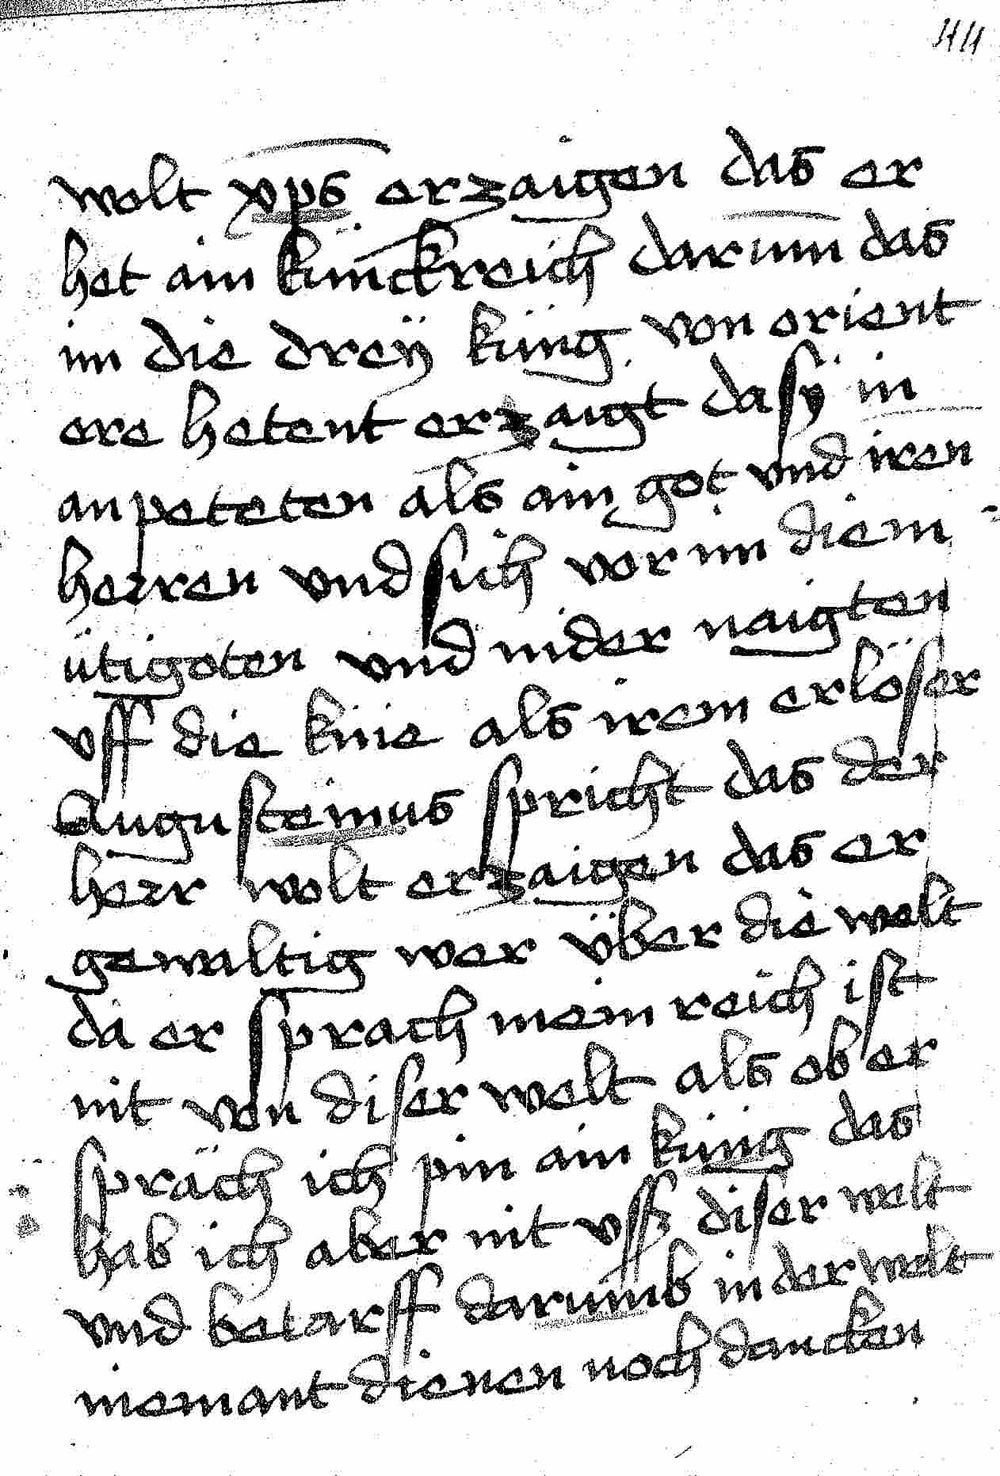 44
wolt xp̄s erzaigen das er
het ain künckreich darum̄ das
im die dreÿ küng von orient
ere hetent erzaigt das sÿ in
anpeteten als ain got vnd iren
herren vnd sich vor im diem
ütigoten vnd nider naigten
vff die knie als irem erlöser
Augusteinus spricht das der
herr wolt erzaigen das er
gewaltig wer über die welt
da er sprach mein reich ist
nit von diser welt als ob er
spräch ich pin ain küng das
hab ich aber nit vssz diser welt
vnd betarff darumb in der welt
niemant dienen noch dancken